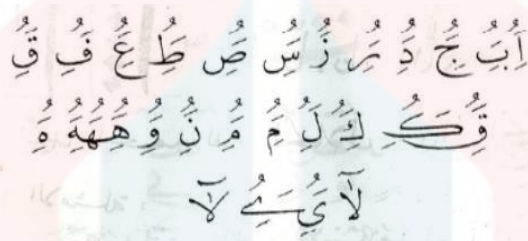 اَُِ بَُِ جَُِ دَُِ رَُِ زَُِ سَُِ صَُِ طَُِ عَُِ فَُِ قَُِ
قَُِ كَُِ كَُِ لَُِ مَُِ مَُِ نَُِ وَُِ هَُِ هَُِ ةَُِ هَُِ
لآ يَُِ ےَُِ لآ